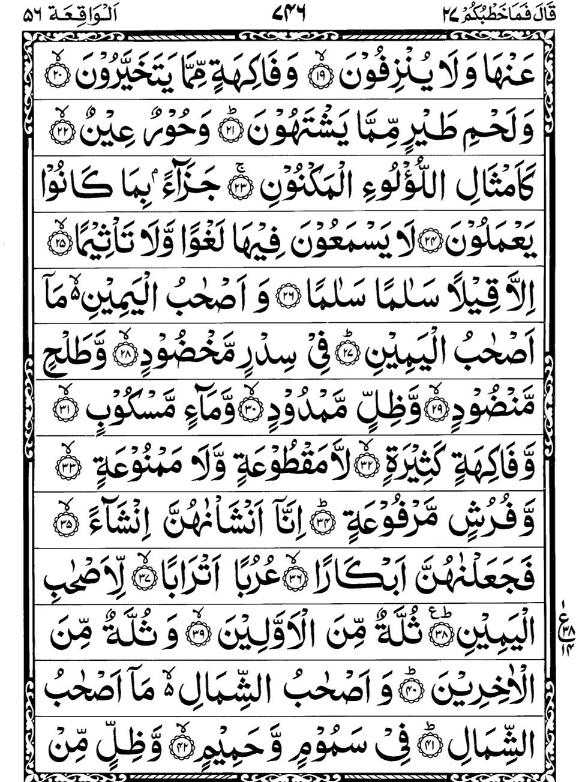 قَالَ فَمَاخَطْبُكُمْ ٢٧ ٧٤٦ اَلْوَاقِعَة ٥٦
عَنْهَا وَلَا يُنْزِفُوْنَ ۙ﴿١٩﴾ وَفَاكِهَةٍ مِّمَّا يَتَخَيَّرُوْنَ ۙ﴿٢٠﴾
وَلَحْمِ طَيْرٍ مِّمَّا يَشْتَهُوْنَ ؕ﴿٢١﴾ وَحُوْرٌ عِيْنٌ ۙ﴿٢٢﴾
كَاَمْثَالِ اللُّؤْلُوءِ الْمَكْنُوْنِ ۚ﴿٢٣﴾ جَزَآءًۢ بِمَا كَانُوْا
يَعْمَلُوْنَ ﴿٢٤﴾ لَا يَسْمَعُوْنَ فِيْهَا لَغْوًا وَّلَا تَاْثِيْمًا ۙ﴿٢٥﴾
اِلَّا قِيْلًا سَلٰمًا سَلٰمًا ﴿٢٦﴾ وَ اَصْحٰبُ الْيَمِيْنِ ۙ۬ مَاۤ
اَصْحٰبُ الْيَمِيْنِ ؕ﴿٢٧﴾ فِيْ سِدْرٍ مَّخْضُوْدٍ ۙ﴿٢٨﴾ وَّطَلْحٍ
مَّنْضُوْدٍ ۙ﴿٢٩﴾ وَّظِلٍّ مَّمْدُوْدٍ ۙ﴿٣٠﴾ وَّمَآءٍ مَّسْكُوْبٍ ۙ﴿٣١﴾
وَّفَاكِهَةٍ كَثِيْرَةٍ ۙ﴿٣٢﴾ لَّا مَقْطُوْعَةٍ وَّلَا مَمْنُوْعَةٍ ۙ﴿٣٣﴾
وَّفُرُشٍ مَّرْفُوْعَةٍ ؕ﴿٣٤﴾ اِنَّاۤ اَنْشَاْنٰهُنَّ اِنْشَآءً ۙ﴿٣٥﴾
فَجَعَلْنٰهُنَّ اَبْكَارًا ۙ﴿٣٦﴾ عُرُبًا اَتْرَابًا ۙ﴿٣٧﴾ لِّاَصْحٰبِ
الْيَمِيْنِ ؕ﴿٣٨﴾ ثُلَّةٌ مِّنَ الْاَوَّلِيْنَ ۙ﴿٣٩﴾ وَثُلَّةٌ مِّنَ
الْاٰخِرِيْنَ ؕ﴿٤٠﴾ وَ اَصْحٰبُ الشِّمَالِ ۙ۬ مَاۤ اَصْحٰبُ
الشِّمَالِ ؕ﴿٤١﴾ فِيْ سَمُوْمٍ وَّحَمِيْمٍ ۙ﴿٤٢﴾ وَّظِلٍّ مِّنْ